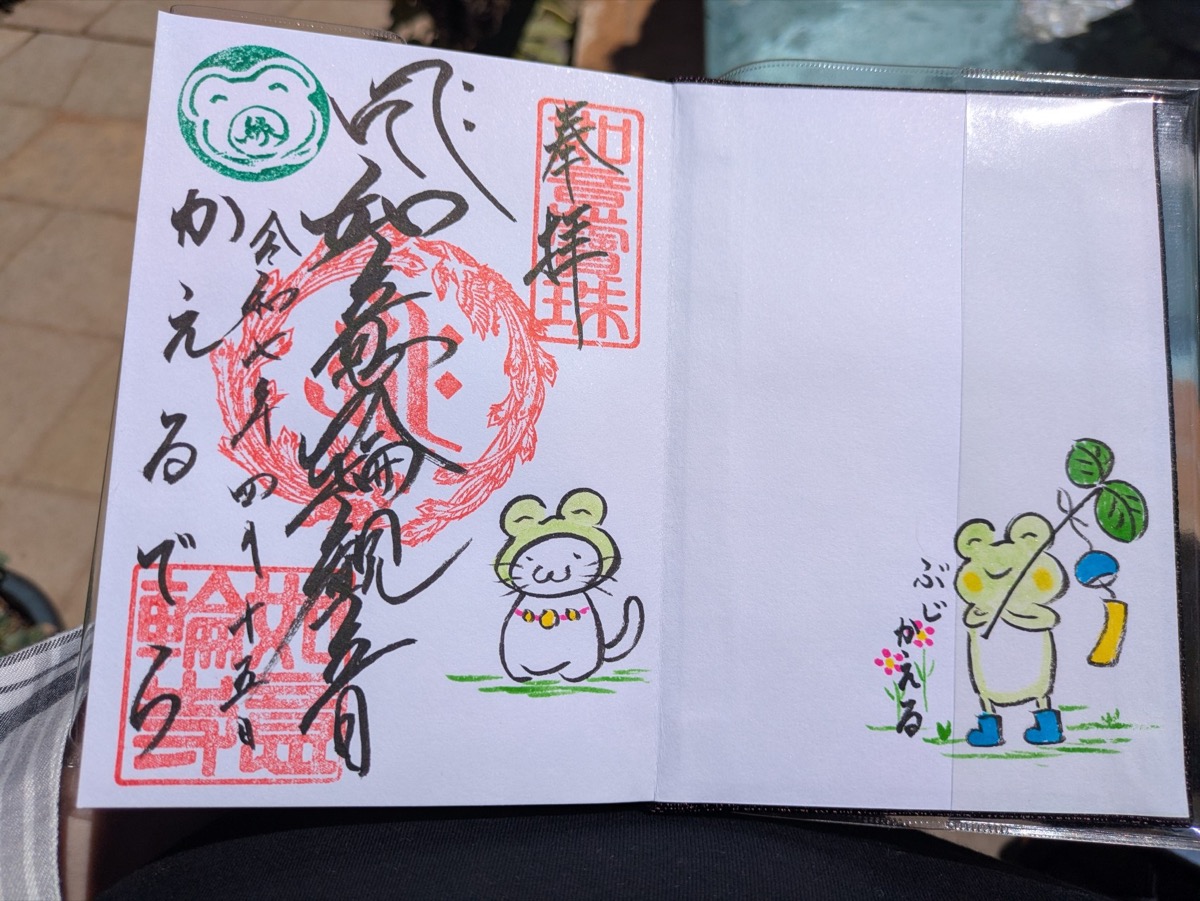 奉拝
如意寶珠
如意輪観音
令和七年四月十五日
かえるでら
如意輪寺
ぶじ
かえる